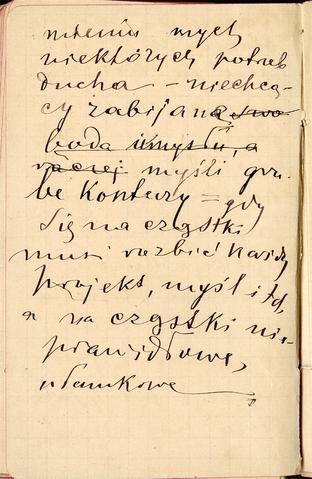 mieniu mych
niektórych potrzeb
ducha – niechcą-
cy zabijana swo-
boda umysłu, a
raczej myśli gru-
be kontury = gdy
się na cząstki
musi rozbić każdy
projekt, myśl i td,
a na cząstki nie-
prawidłowe,
ułamkowe